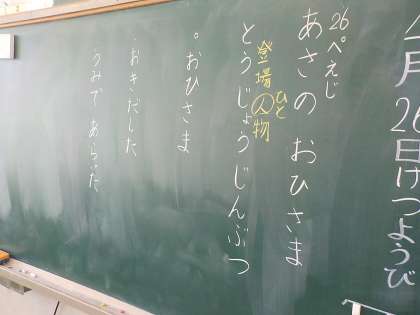 月 26日げつようび
26ぺえじ
あさの おひさま
登場人物
ひと
とうじょうじんぶつ
。おひさま
・おきだした
・うみで あらった